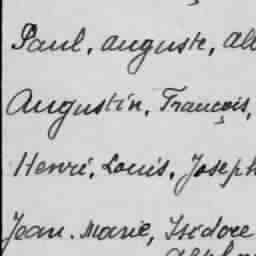 Paul, auguste, alb
Augustin, François,
Henri, Louis, Joseph
Jean. Marie, Isidore